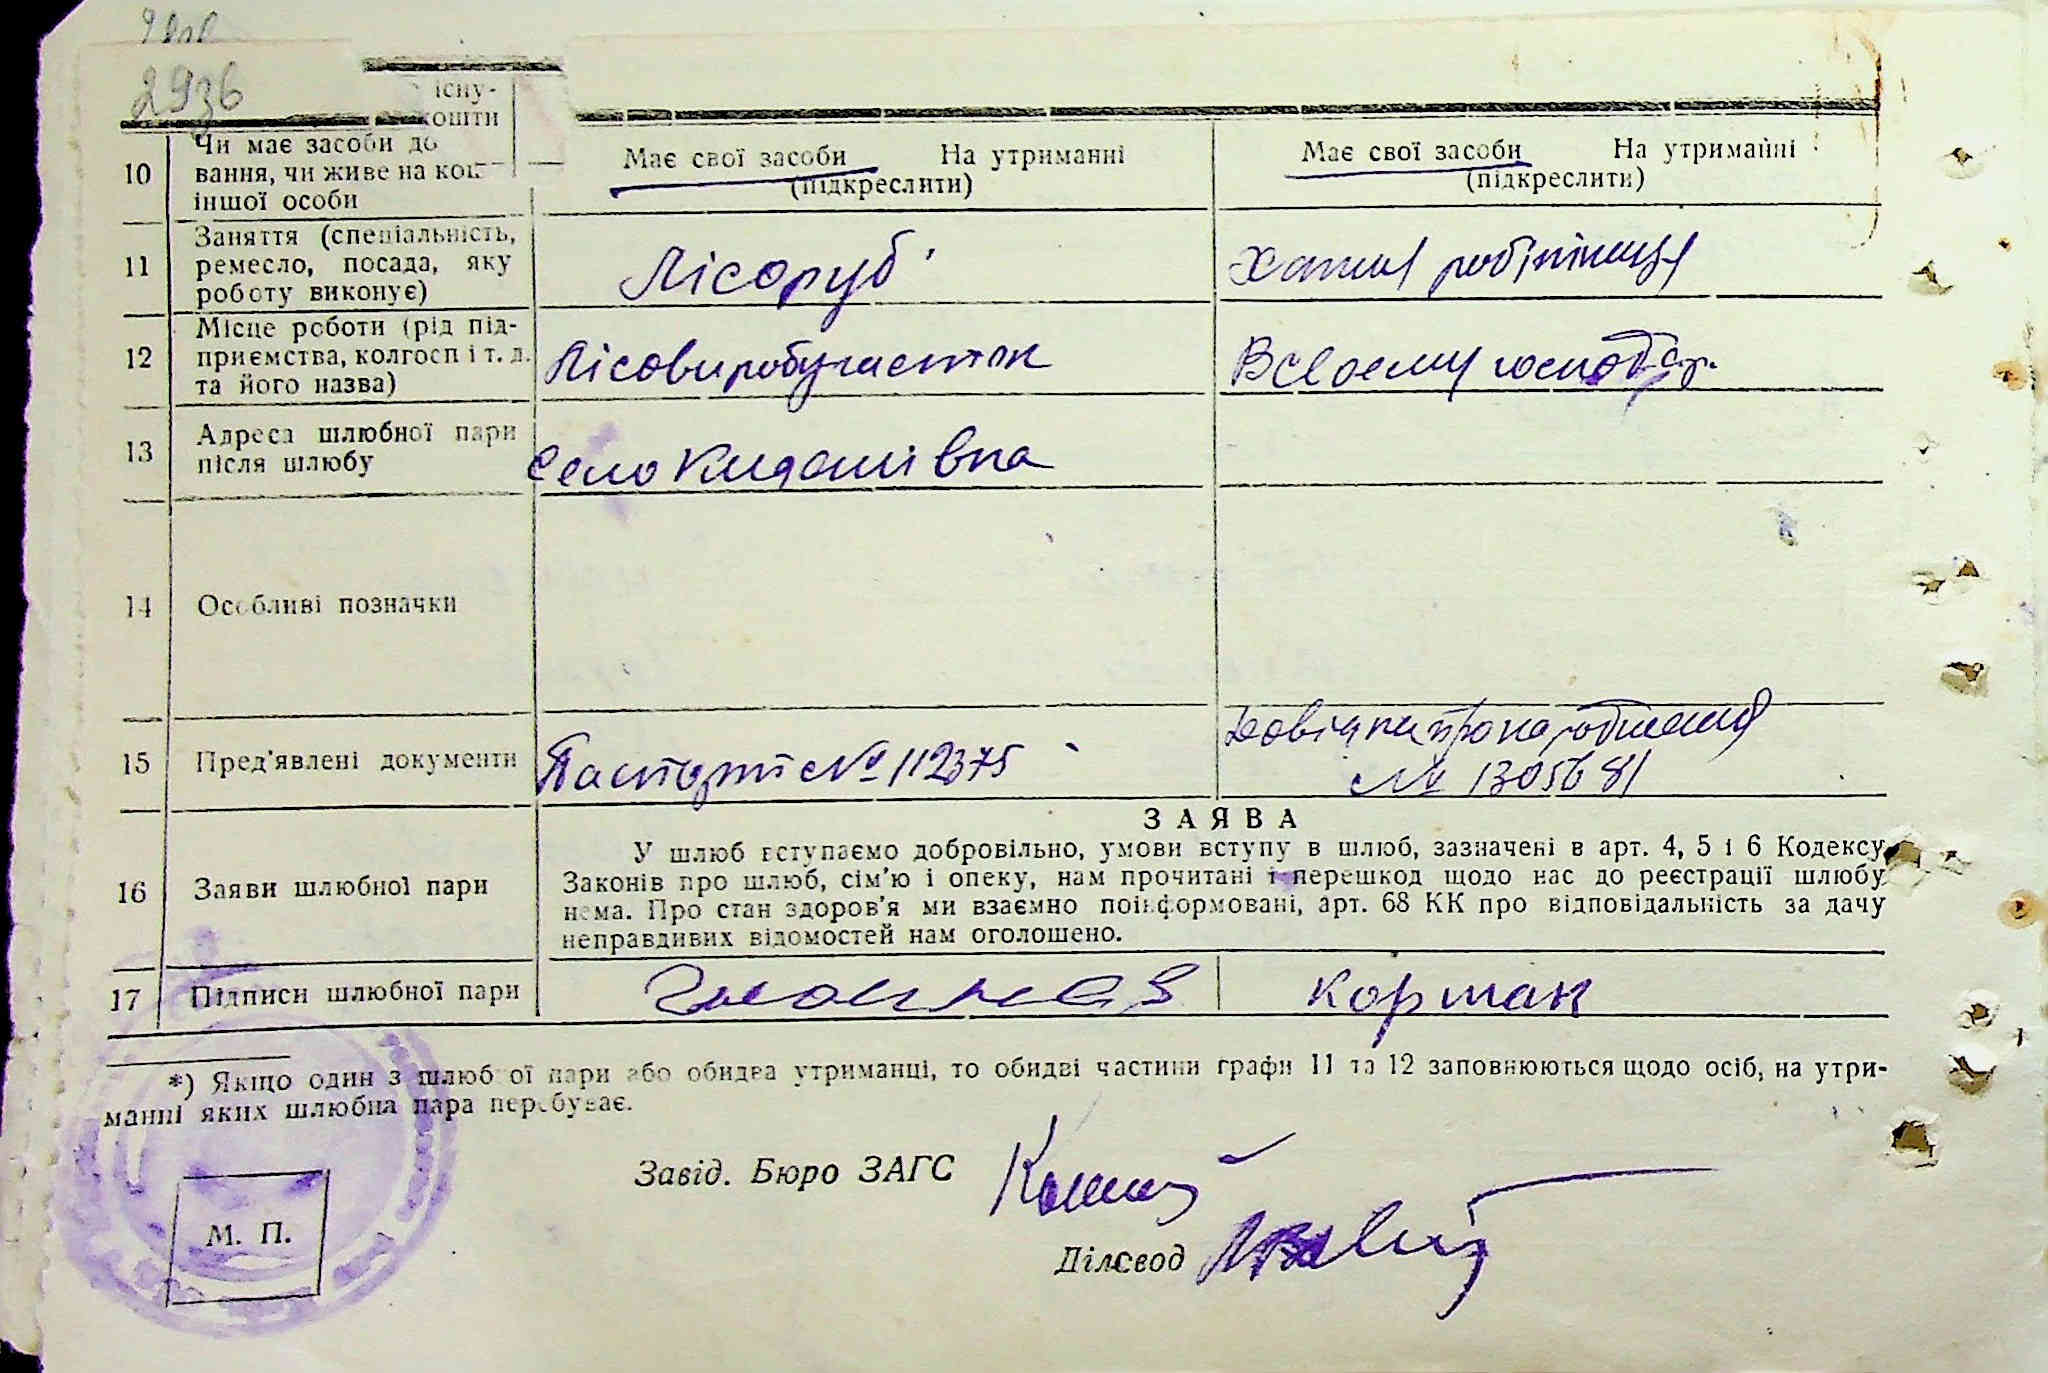 2936
існу-
кошти
10 Чи має засоби до
вання, чи живе на кош
іншої особи
Має свої засоби На утриманні
(підкреслити)
Має свої засоби На утриманні
(підкреслити)
11 Заняття (спеціальність,
ремесло, посада, яку
роботу виконує)
Лісоруб
Хатня робітниця
12 Місце роботи (рід під-
приємства, колгосп і т. д.
та його назва)
Лісовиробучасток
В своєму господар.
13 Адреса шлюбної пари
після шлюбу
село Кидашівка
14 Особливі позначки
15 Пред'явлені документи
Паспорт № 112375
Довідка про народження
№ 1305681
16 Заяви шлюбної пари
ЗАЯВА
У шлюб вступаємо добровільно, умови вступу в шлюб, зазначені в арт. 4, 5 і 6 Кодексу
Законів про шлюб, сім'ю і опеку, нам прочитані і перешкод щодо нас до реєстрації шлюбу
нема. Про стан здоров'я ми взаємно поінформовані, арт. 68 КК про відповідальність за дачу
неправдивих відомостей нам оголошено.
17 Підписи шлюбної пари
Коршак
*) Якщо один з шлюбної пари або обидва утриманці, то обидві частини графи 11 та 12 заповнюються щодо осіб, на утри-
манні яких шлюбна пара перебуває.
Завід. Бюро ЗАГС
Діловод
М. П.